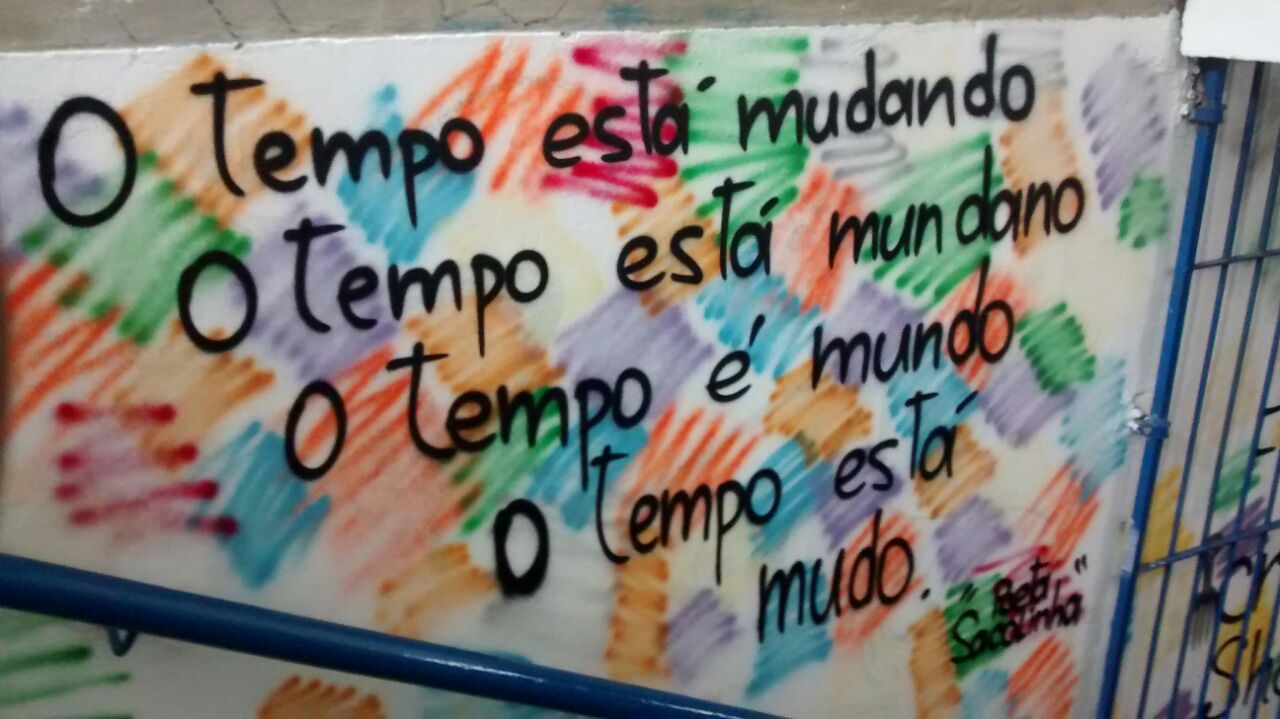 O tempo está mudando
O tempo está mundano
O tempo é mundo
O tempo está
mudo.
"Poeta
Sacolinha"